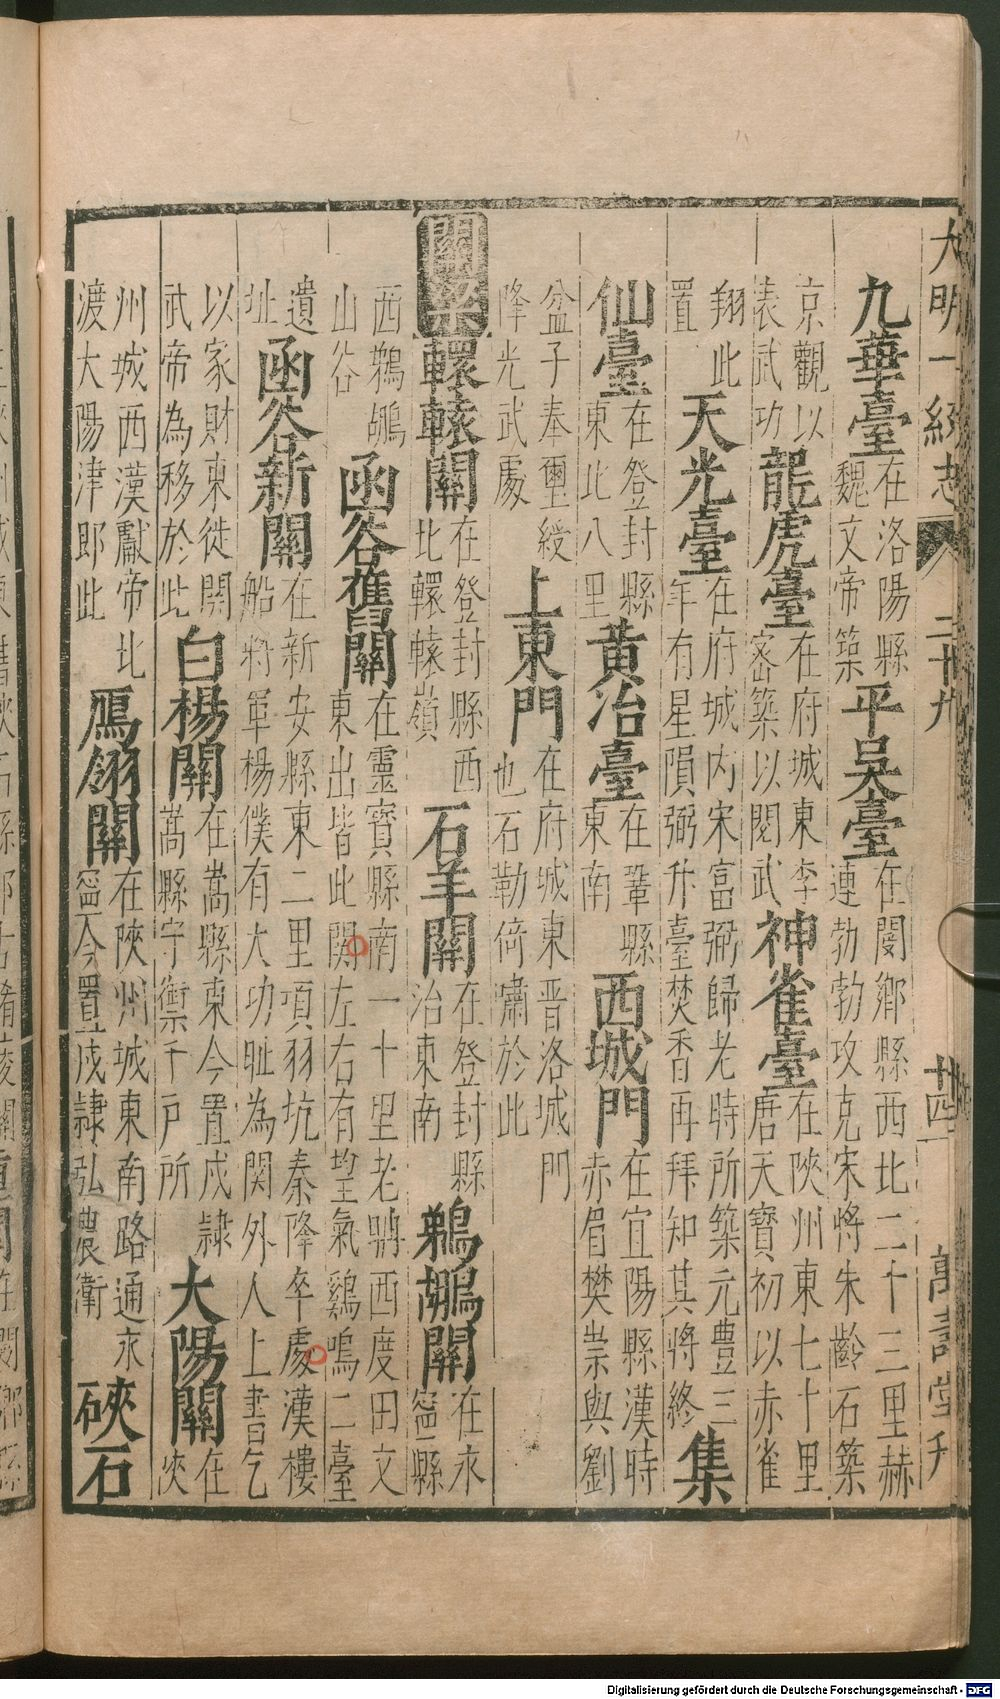 大明一統志 卷二十九 廿四 萬壽堂刊
九華臺 在洛陽縣魏文帝築 平吳臺 在閿鄉縣西北二十三里赫連勃勃攻克宋將朱齡石築
京觀以表武功 龍虎臺 在府城東李密築以閱武 神雀臺 在陝州東七十里唐天寶初以赤雀
翔此置 天光臺 在府城内宋富弼歸老時所築元豊三年有星隕弼升臺焚香再拜知其將終 集
仙臺 在登封縣東北八里 黃治臺 在鞏縣東南 西城門 在宜陽縣漢時赤眉樊崇與劉
盆子奉璽綬降光武處 上東門 在府城東晋洛城門也石勒倚嘯於此
關梁 轘轅關 在登封縣西北轘轅嶺 石羊關 在登封縣治東南 鵜鶘關 在永寧縣
西鵜鶘山谷 函谷舊關 在靈寶縣南一十里老聃西度田文東出皆此関左右有望氣鷄鳴二臺
遺址 函谷新關 在新安縣東二里項羽坑秦降卒處漢樓船將軍楊僕有大功耻為関外人上書乞
以家財東徙関武帝為移於此 白楊關 在嵩縣東今置戍隷嵩縣守禦千戶所 大陽關 在陝
州城西漢獻帝北渡大陽津即此 鴈翎關 在陝州城東南路通永寧今置戍隷弘農衛 硤石
Digitalisierung gefördert durch die Deutsche Forschungsgemeinschaft - DFG